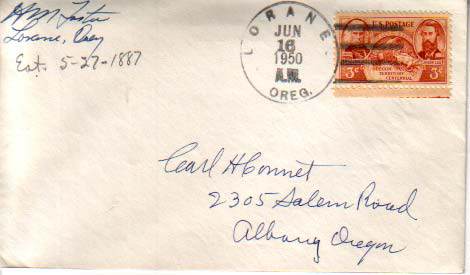 HM Foster
Lorane, Oreg
Est. 5-27-1887
LORANE
JUN
16
1950
A.M.
OREG.
U.S. POSTAGE
3¢ 3¢
OREGON
TERRITORY
CENTENNIAL
Earl H Bonnet
2305 Salem Road
Albany Oregon